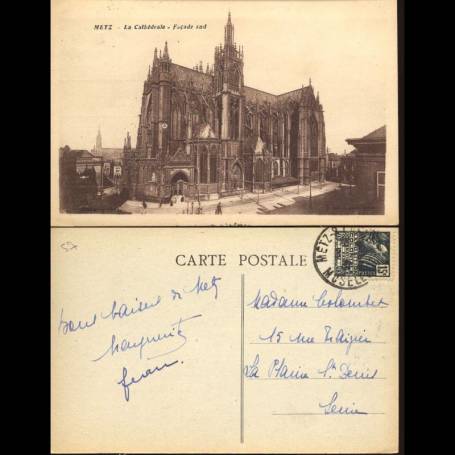 METZ - La Cathédrale - Façade sud
57
CARTE POSTALE
METZ
MOSELLE
15c
bons baisers de Metz
Marguerite
Jean.
Madame Colombet
15 rue
La Plaine St Denis
Seine